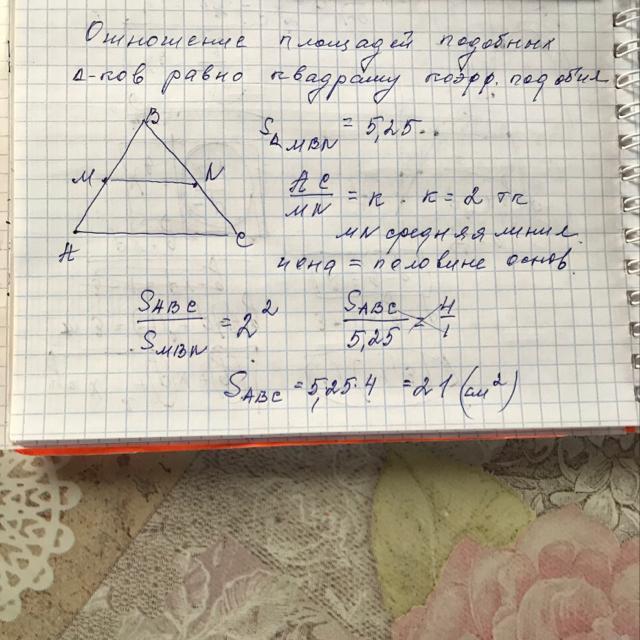 Отношение площадей подобных
Δ-ков равно квадрату коэфф. подобия
B
S△MBN = 5,25.
M N
AC/MN = k k = 2 тк
MN средняя линия
A C
и она = половине основ.
SABC/SMBN = 2²
SABC/5,25 = 4/1
SABC = 5,25·4 = 21 (см²)